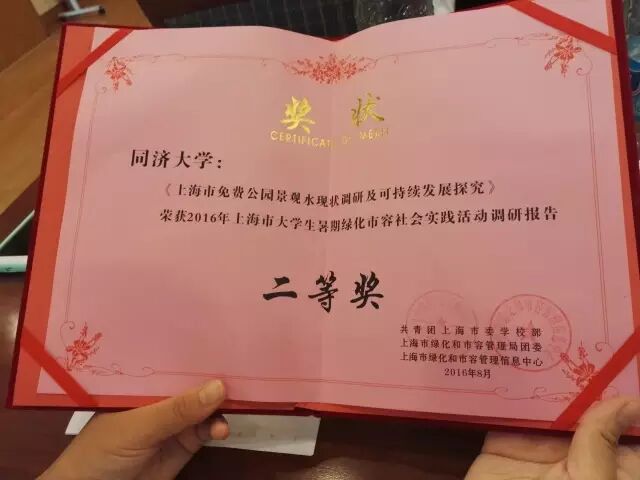 奖状
CERTIFICATE OF MERIT
同济大学：
《上海市免费公园景观水现状调研及可持续发展探究》
荣获2016年上海市大学生暑期绿化市容社会实践活动调研报告
二等奖
共青团上海市委学校部
上海市绿化和市容管理局团委
上海市绿化和市容管理信息中心
2016年8月